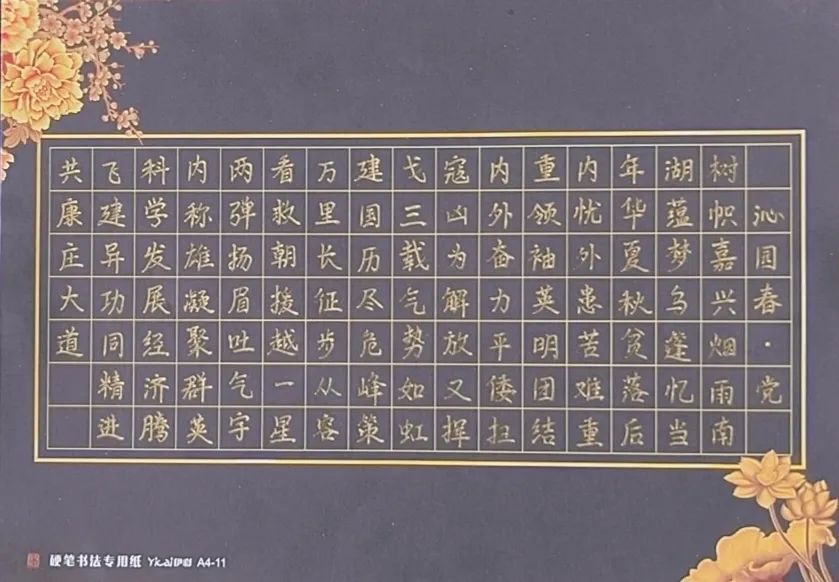 沁园春·党
树帜嘉兴烟雨南
湖蕴梦乌蓬忆当
年华夏秋贫落后
内忧外患苦难重
重领袖英明团结
内外奋力平倭扫
寇凶为解放又挥
戈三载气势如虹
建国历尽危峰策
万里长征步从容
看救朝援越一星
两弹扬眉吐气宇
内称雄凝聚群英
科学发展经济腾
飞建异功同精进
共康庄大道
硬笔书法专用纸 A4-11